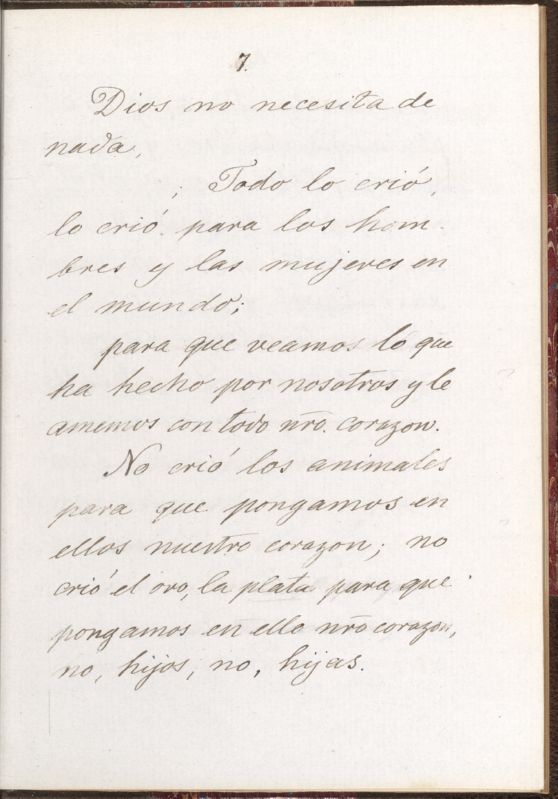 7.
Dios no necesita de
nada,
; Todo lo crió,
lo crió para los hom-
bres y las mujeres en
el mundo;
para que veamos lo que
ha hecho por nosotros y le
amemos con todo nrō. corazon.
No crió los animales
para que pongamos en
ellos nuestro corazon; no
crió el oro, la plata para que
pongamos en ello nrō corazon,
no, hijos, no, hijas.